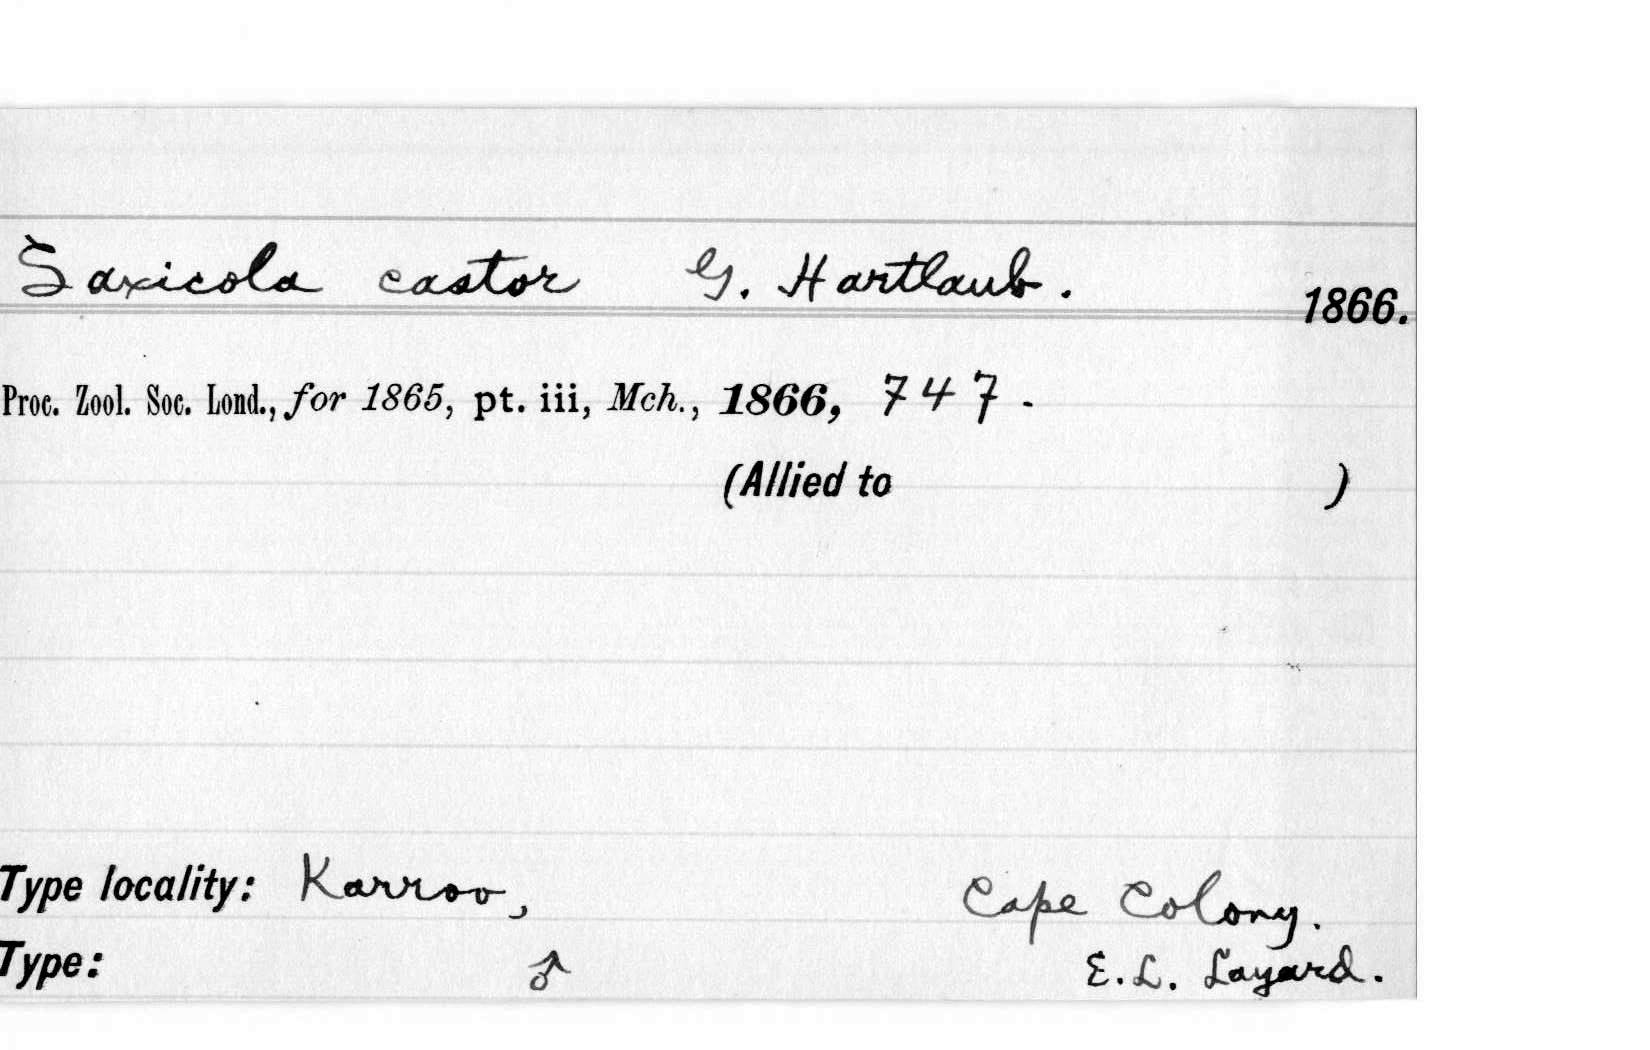 Saxicola castor G. Hartlaub.
1866.
Proc. Zool. Soc. Lond., for 1865, pt. iii, Mch., 1866, 747.
(Allied to )
Type locality: Karroo, Cape Colony.
Type: ♂ E. L. Layard.